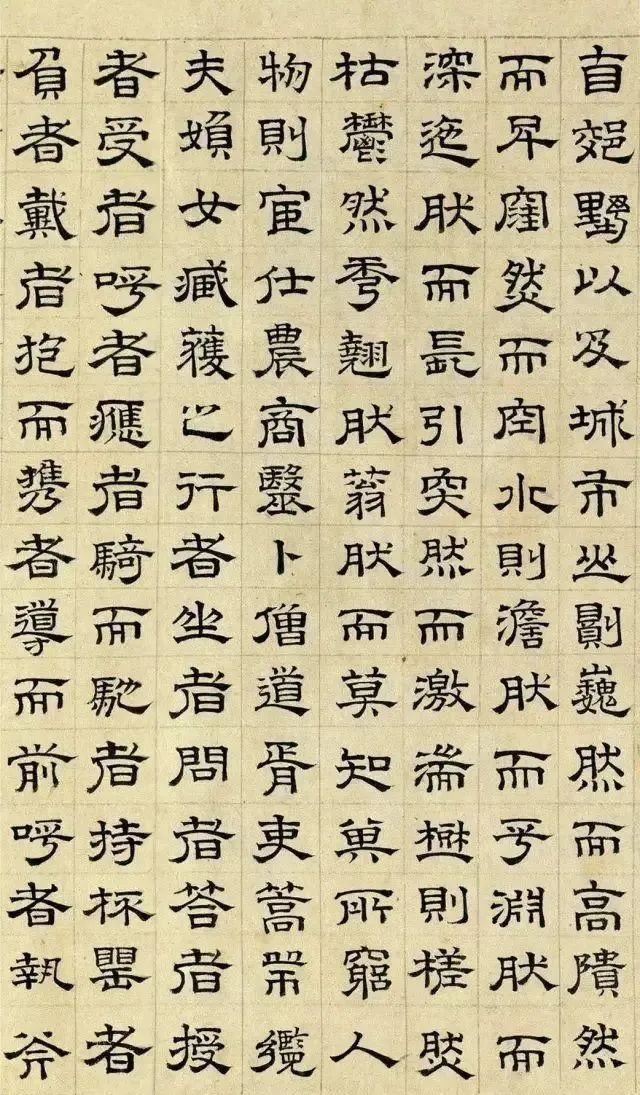 自郊墅以及城市山則巍然而高隤然
而卑窪然而空水則澹然而平淵然而
深迤然而長引突然而激湍樹則槎然
枯鬱然秀翹然蓊然而莫知其所窮人
物則宦仕農商醫卜僧道胥吏篙師纜
夫婦女臧獲之行者坐者問者答者授
者受者呼者應者騎而馳者持杯罌者
負者戴者抱而攜者導而前呼者執斧